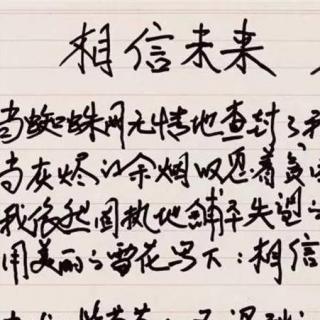 相信未来
当蜘蛛网无情地查封了我
当灰烬的余烟叹息着贫
我依然固执地铺平失望的
用美丽的雪花写下：相信